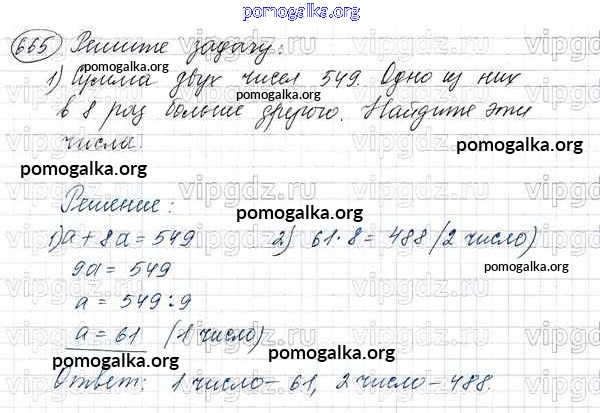 pomogalka.org
665 Решите задачу:
pomogalka.org
1) Сумма двух чисел 549. Одно из них
pomogalka.org
в 8 раз больше другого. Найдите эти
числа
pomogalka.org
pomogalka.org
pomogalka.org
vipgdz.ru
Решение:
pomogalka.org
1) a + 8a = 549 2) 61·8 = 488 (2 число)
9a = 549
pomogalka.org
a = 549:9
a = 61 (1 число)
pomogalka.org
pomogalka.org
pomogalka.org
Ответ: 1 число – 61, 2 число – 488.